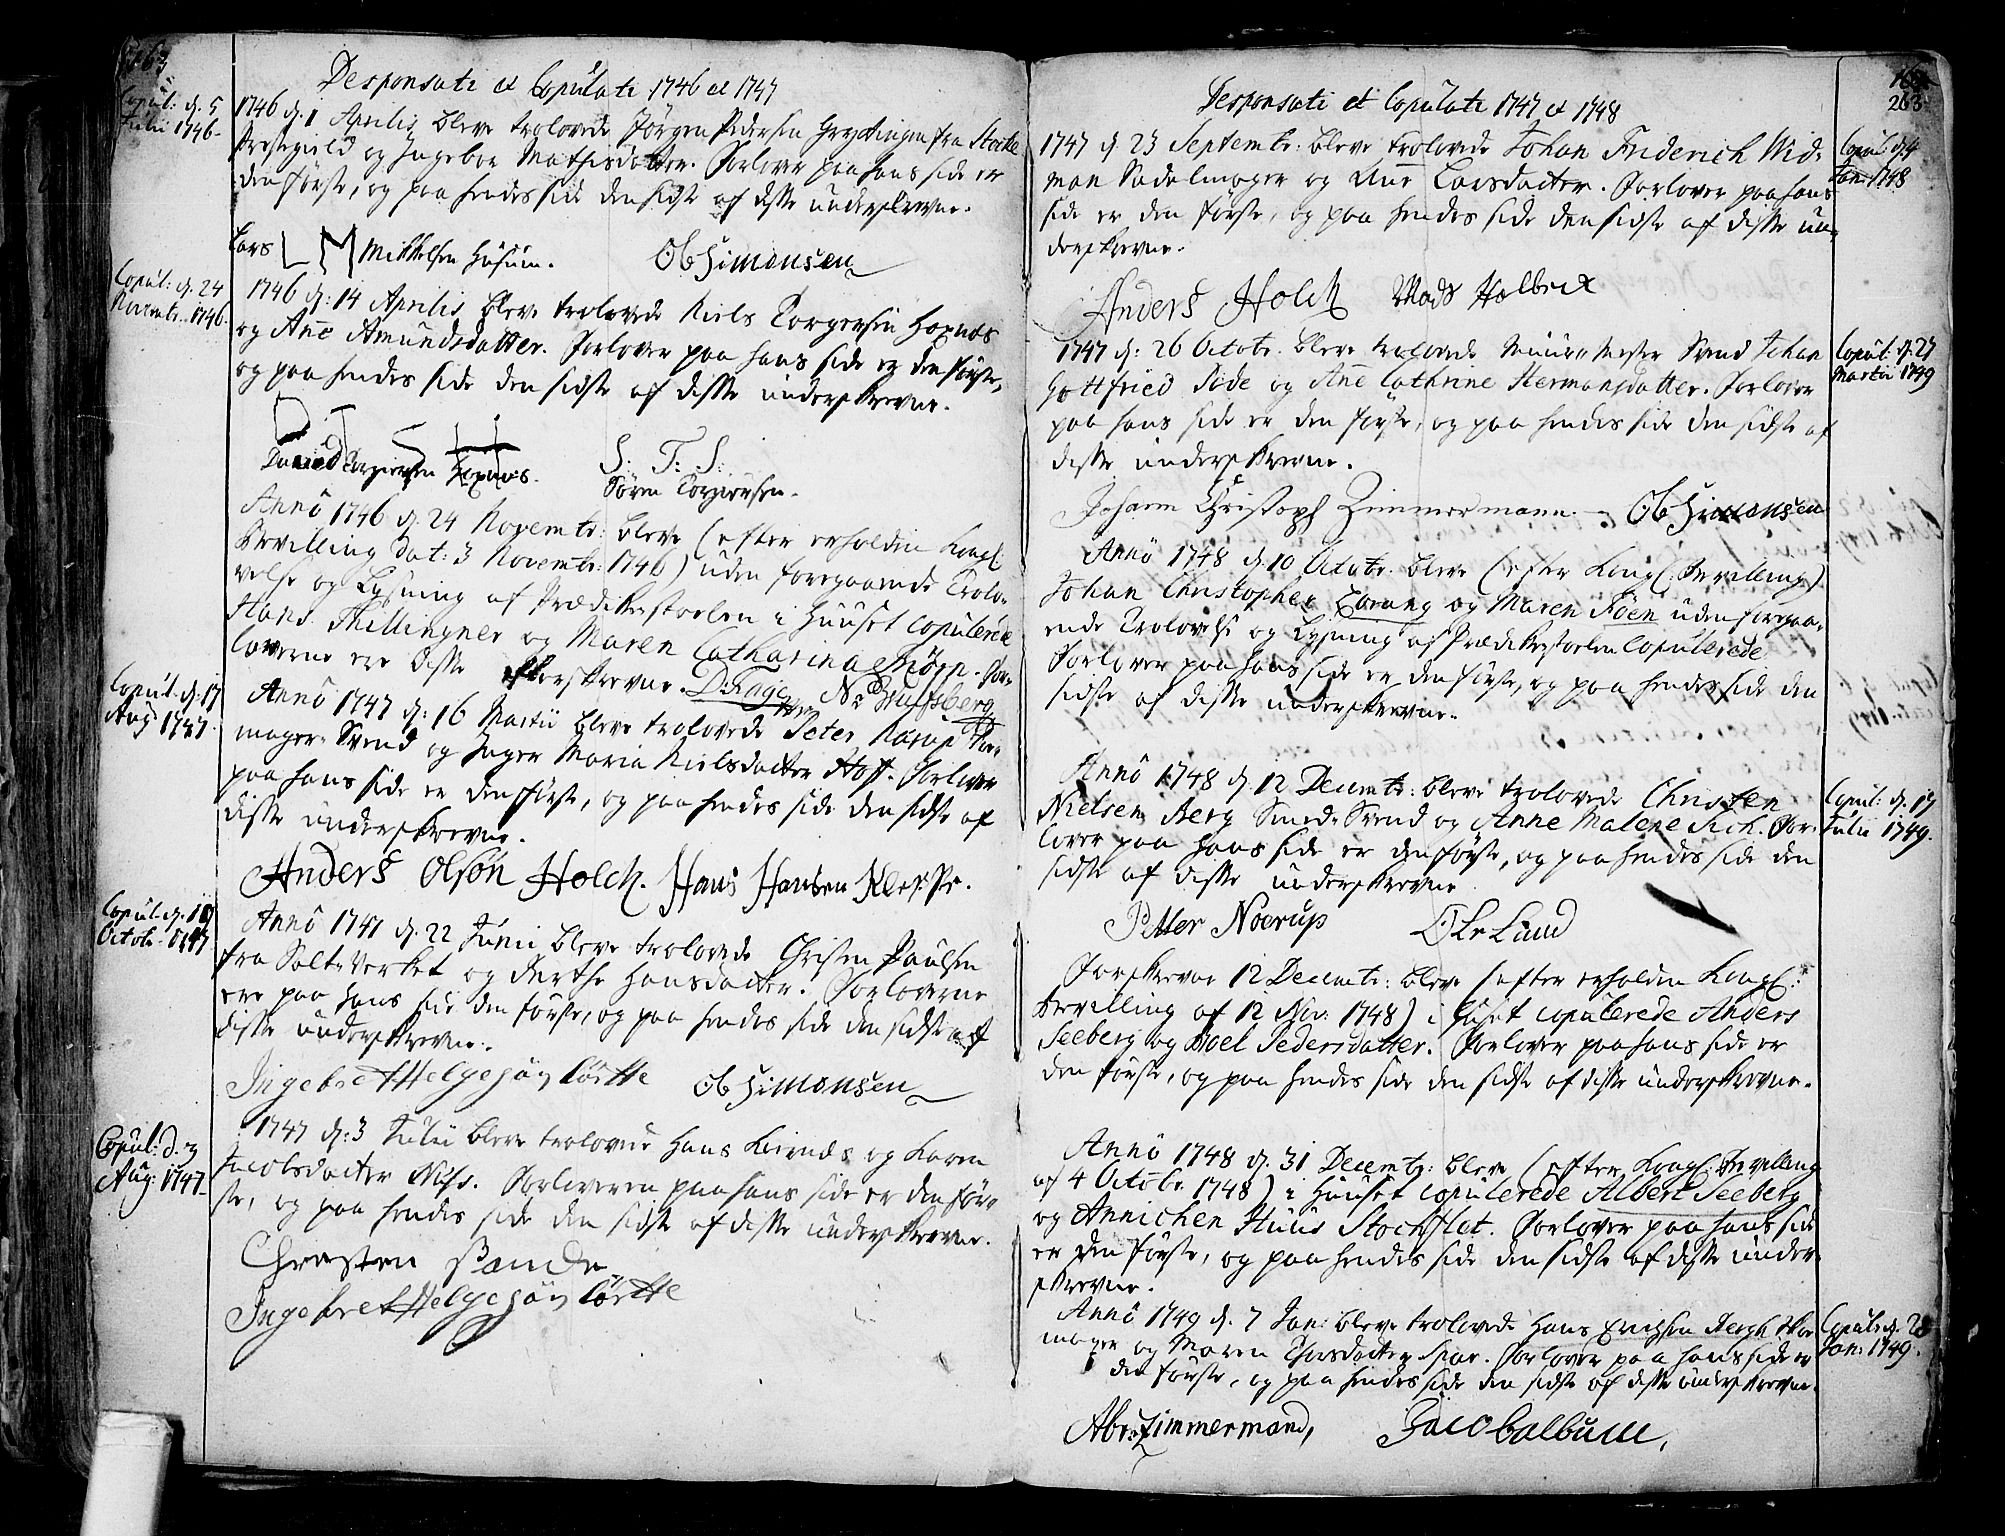 Desponsati et Copulati 1746 et 1747
Copul: d. 5
Julii 1746.
1746 d. 1 Aprilis bleve trolovede Jörgen Pedersen fra Stocke
Prestegield og Ingebor Mathisdatter. Forlover paa hans side er
den förste, og paa hendes side den sidste af disse underskrevne.
Lars L M Mikkelsen Husum. Ob Simonsen
Copul: d. 24
Novembr. 1746.
1746 d: 14 Aprilis bleve trolovede Niels Torgersen Hoxnæs
og Ane Amundsdatter. Forlover paa hans side er den förste,
og paa hendes side den sidste af disse underskrevne.
S. T: S.
Torgersen Hoxnæs. Sören Torgersen.
Anno 1746 d. 24 Novembr: bleve (efter erholden Kongl
Bevilling dat: 3 Novembr: 1746) uden foregaaende Trolo-
velse og Lysning af Prædikestoelen i Huuset copulerede
Hans Thillingner og Maren Catharina Biörn. For-
loverne ere disse underskrevne.
Copul. d. 17
Aug: 1747.
Anno 1747 d: 16 Martii bleve trolovede Peter Narup
mager-Svend og Inger Maria Nielsdatter Hoff. Forlover
paa hans side er den förste, og paa hendes side den sidste af
disse underskrevne.
Anders Olsön Holck. Hans Hansen Kleppe.
Copul. d. 18
Octob. 1747
Anno 1747 d. 22 Junii bleve trolovede Christen Paulsen
fra Salt-Verket og Berthe Hansdatter. Forloverne
ere paa hans side den förste, og paa hendes side den sidste af
disse underskrevne.
Ingebret Helgesön Ob Simonsen
Copul: d. 3
Aug: 1747.
1747 d: 3 Julii bleve trolovede Hans og Karen
Jacobsdatter Forloveren paa hans side er den för-
ste, og paa hendes side den sidste af disse underskrevne.
Christen
Ingebret Helgesön
263
Desponsati et Copulati 1747 et 1748
1747 d. 23 Septembr: bleve trolovede Johan Friderich Wid-
man Sadelmager og Ane Larsdatter. Forlover paa hans
side er den förste, og paa hendes side den sidste af disse un-
derskrevne.
Copul: d. 4
Jan: 1748
Anders Holck Mads Holbeck
1747 d: 26 Octobr. bleve trolovede Muur-Mester Svend Johan
Gottfried Töde og Ane Cathrine Hermansdatter. Forlover
paa hans side er den förste, og paa hendes side den sidste af
disse underskrevne.
Copul: d. 27
Martii 1749
Johann Christoph Zimmermann. Ob Simonsen
Anno 1748 d. 10 Octobr. bleve (efter Kongl: Bevilling)
Johan Christopher og Maren uden foregaa-
ende Trolovelse og Lysning af Prædikestoelen copulerede
Forlover paa hans side er den förste, og paa hendes side den
sidste af disse underskrevne.
Anno 1748 d. 12 Decembr: bleve trolovede Christen
Nielsen Berg Smed-Svend og Anne Malene Sich. For-
lover paa hans side er den förste, og paa hendes side den
sidste af disse underskrevne
Copul: d. 17
Julii 1749.
Petter Noerup Ole Lund
Forskrevne 12 Decembr: bleve (efter erholden Kongl:
Bevilling af 12 Nov: 1748) i Huset copulerede Anders
Seeberg og Boel Pedersdatter. Forlover paa hans side er
den förste, og paa hendes side den sidste af disse underskrevne.
Anno 1748 d. 31 Decembr: bleve (efter Kongl: Bevilling
af 4 Octobr 1748) i Huuset copulerede Albert Seeberg
og Annichen Huus Stochflet. Forlover paa hans side
er den förste, og paa hendes side den sidste af disse under-
skrevne.
Anno 1749 d. 7 Jan: bleve trolovede Hans Erichsen Bergh Skoe
mager og Maren Forlover paa hans side er
den förste, og paa hendes side den sidste af disse underskrevne.
Copul: d. 28
Jan: 1749.
Abr: Zimmermand, Jacob Calbum.